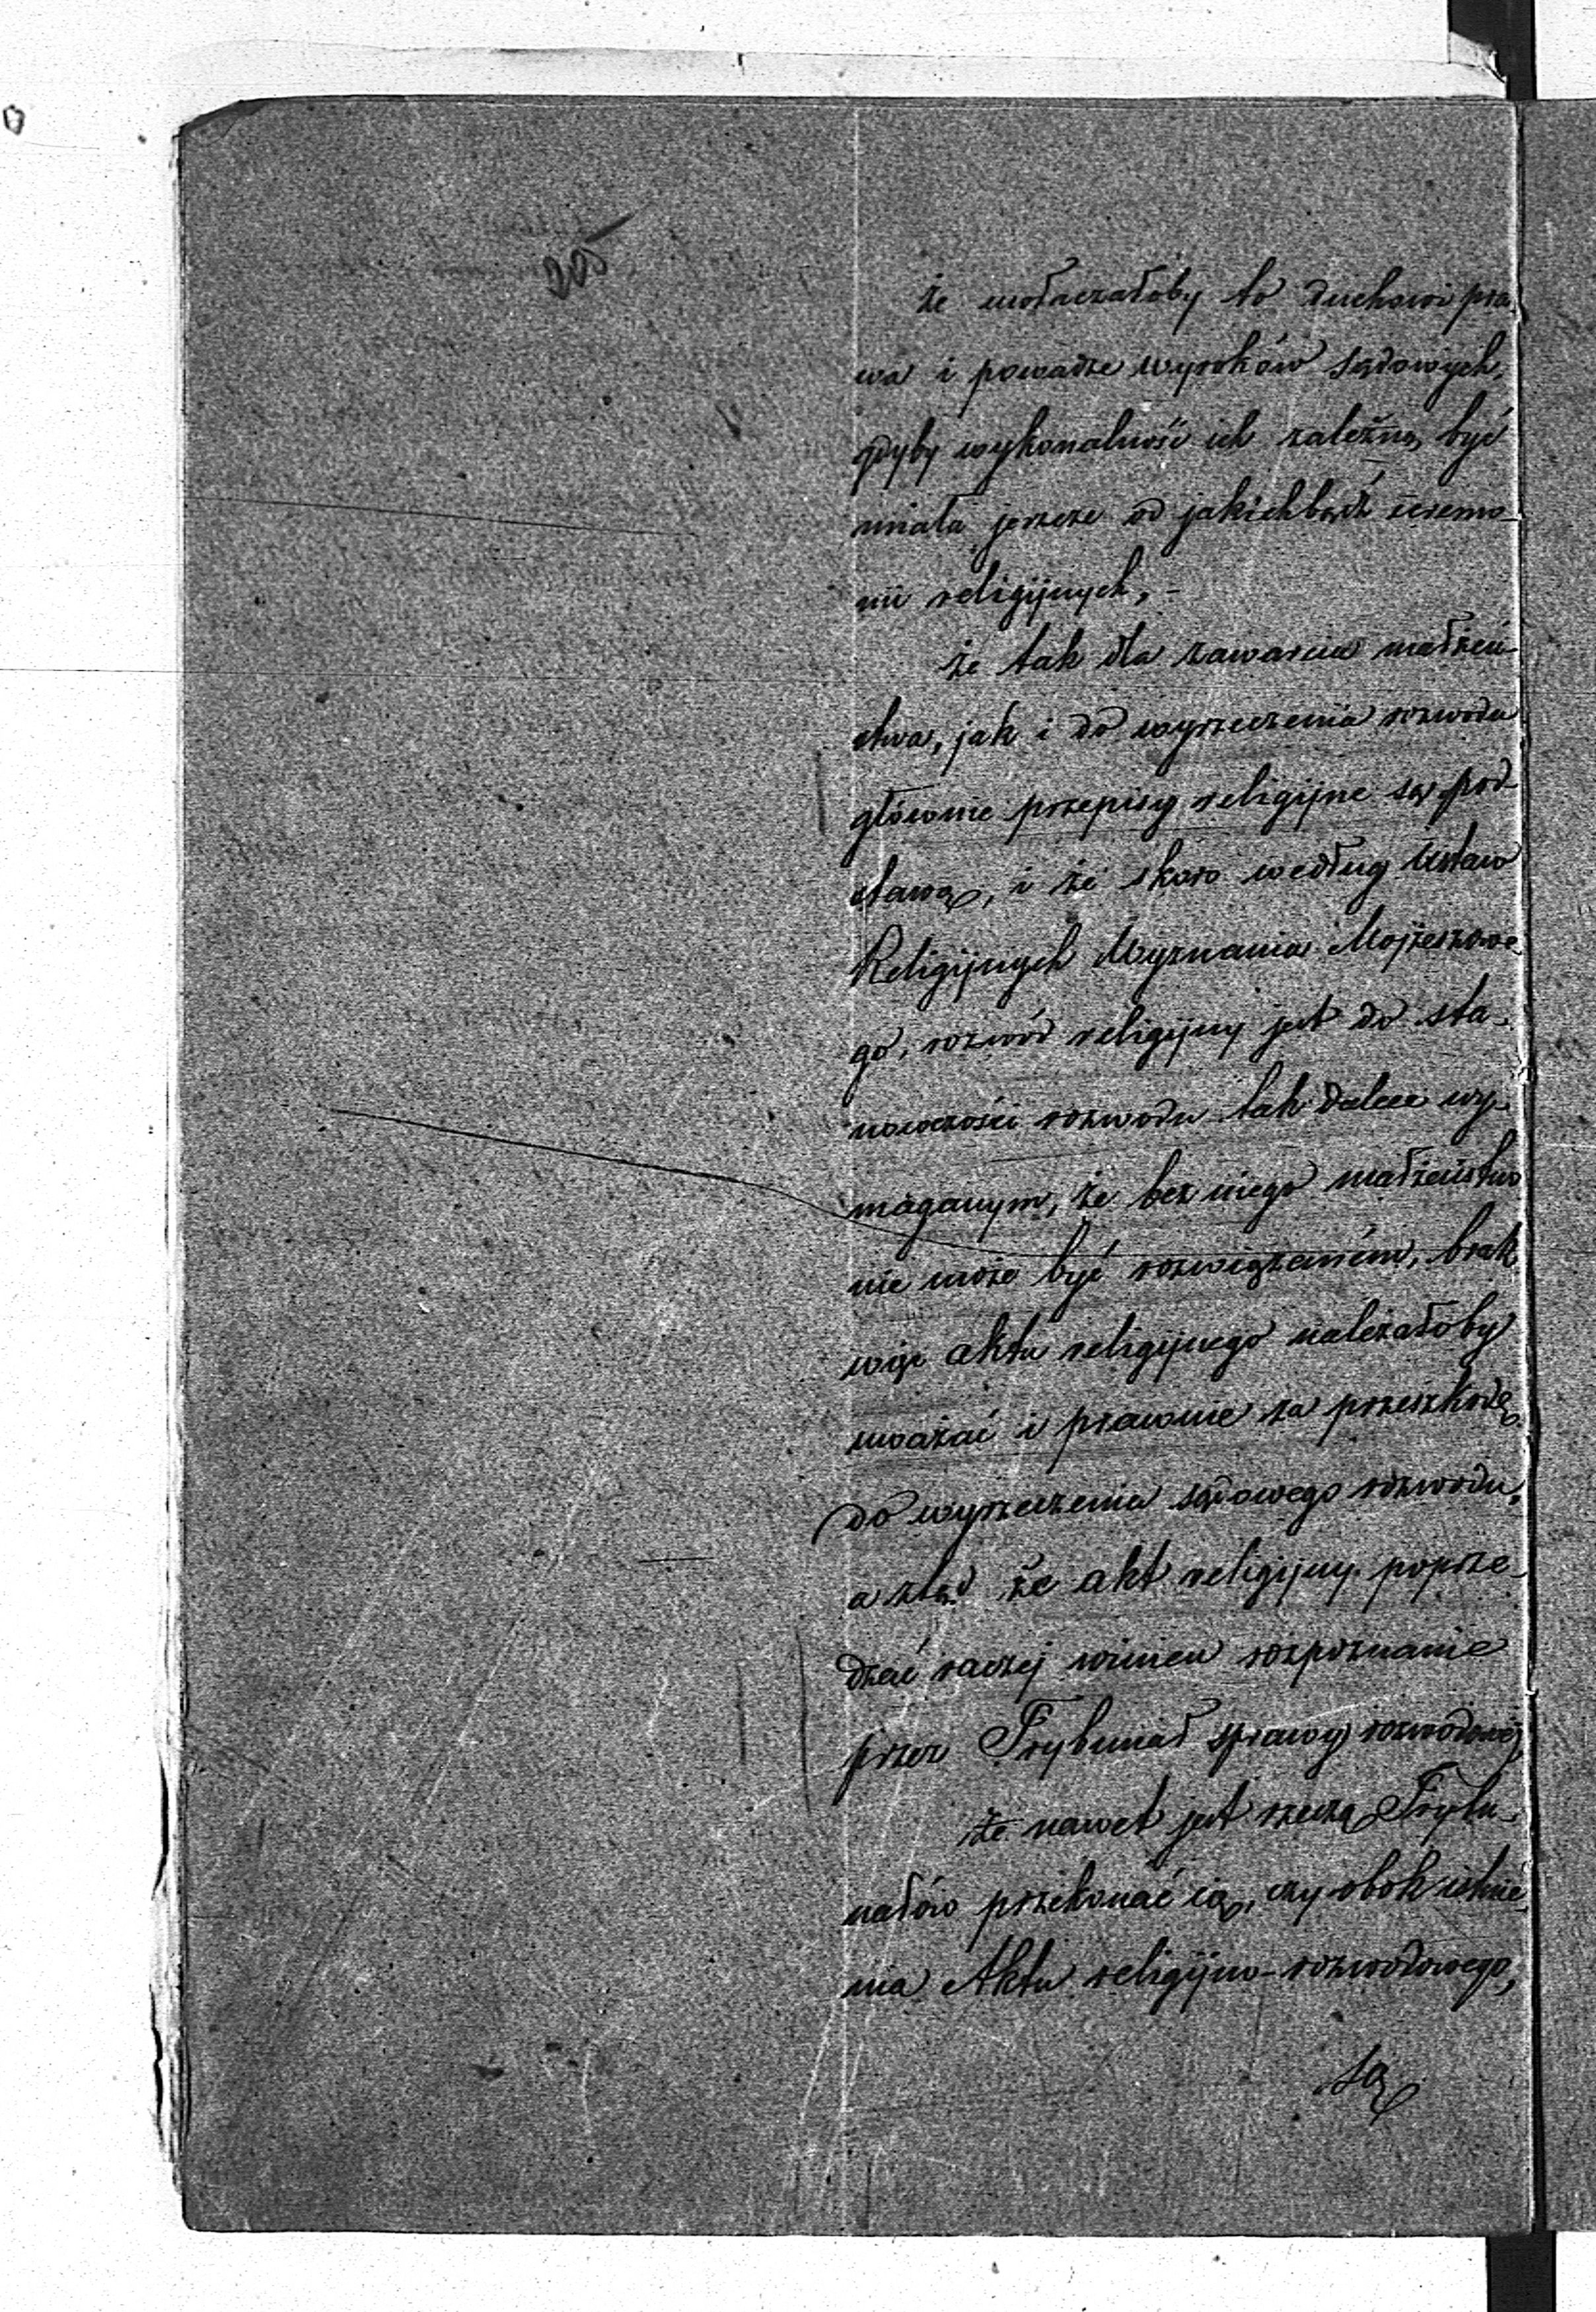 205
że uwłaczałoby to duchowi pra-
wa i powadze wyroków sądowych,
gdyby wykonalność ich zależną być
miała jeszcze od jakichbądź ceremo-
nii religijnych, -
że tak dla zawarcia małżeń-
stwa, jak i do wyrzeczenia rozwodu
głównie przepisy religijne są pod-
stawą, i że skoro według Ustaw
Religijnych Wyznania Mojżeszowe-
go, rozwód religijny jest do sta-
nowczości rozwodu tak dalece wy-
maganym, że bez niego małżeństwo
nie może być rozwiązaném, brak
więc aktu religijnego należałoby
uważać i prawnie za przeszkodę
do wyrzeczenia sądowego rozwodu,
a ztąd że akt religijny poprze-
dzać raczej winien rozpoznanie
przez Trybunał sprawy rozwodowéj
że nawet jest rzeczą Trybu-
nałów przekonać się, czy obok istnie-
nia Aktu religijno-rozwodowego,
są